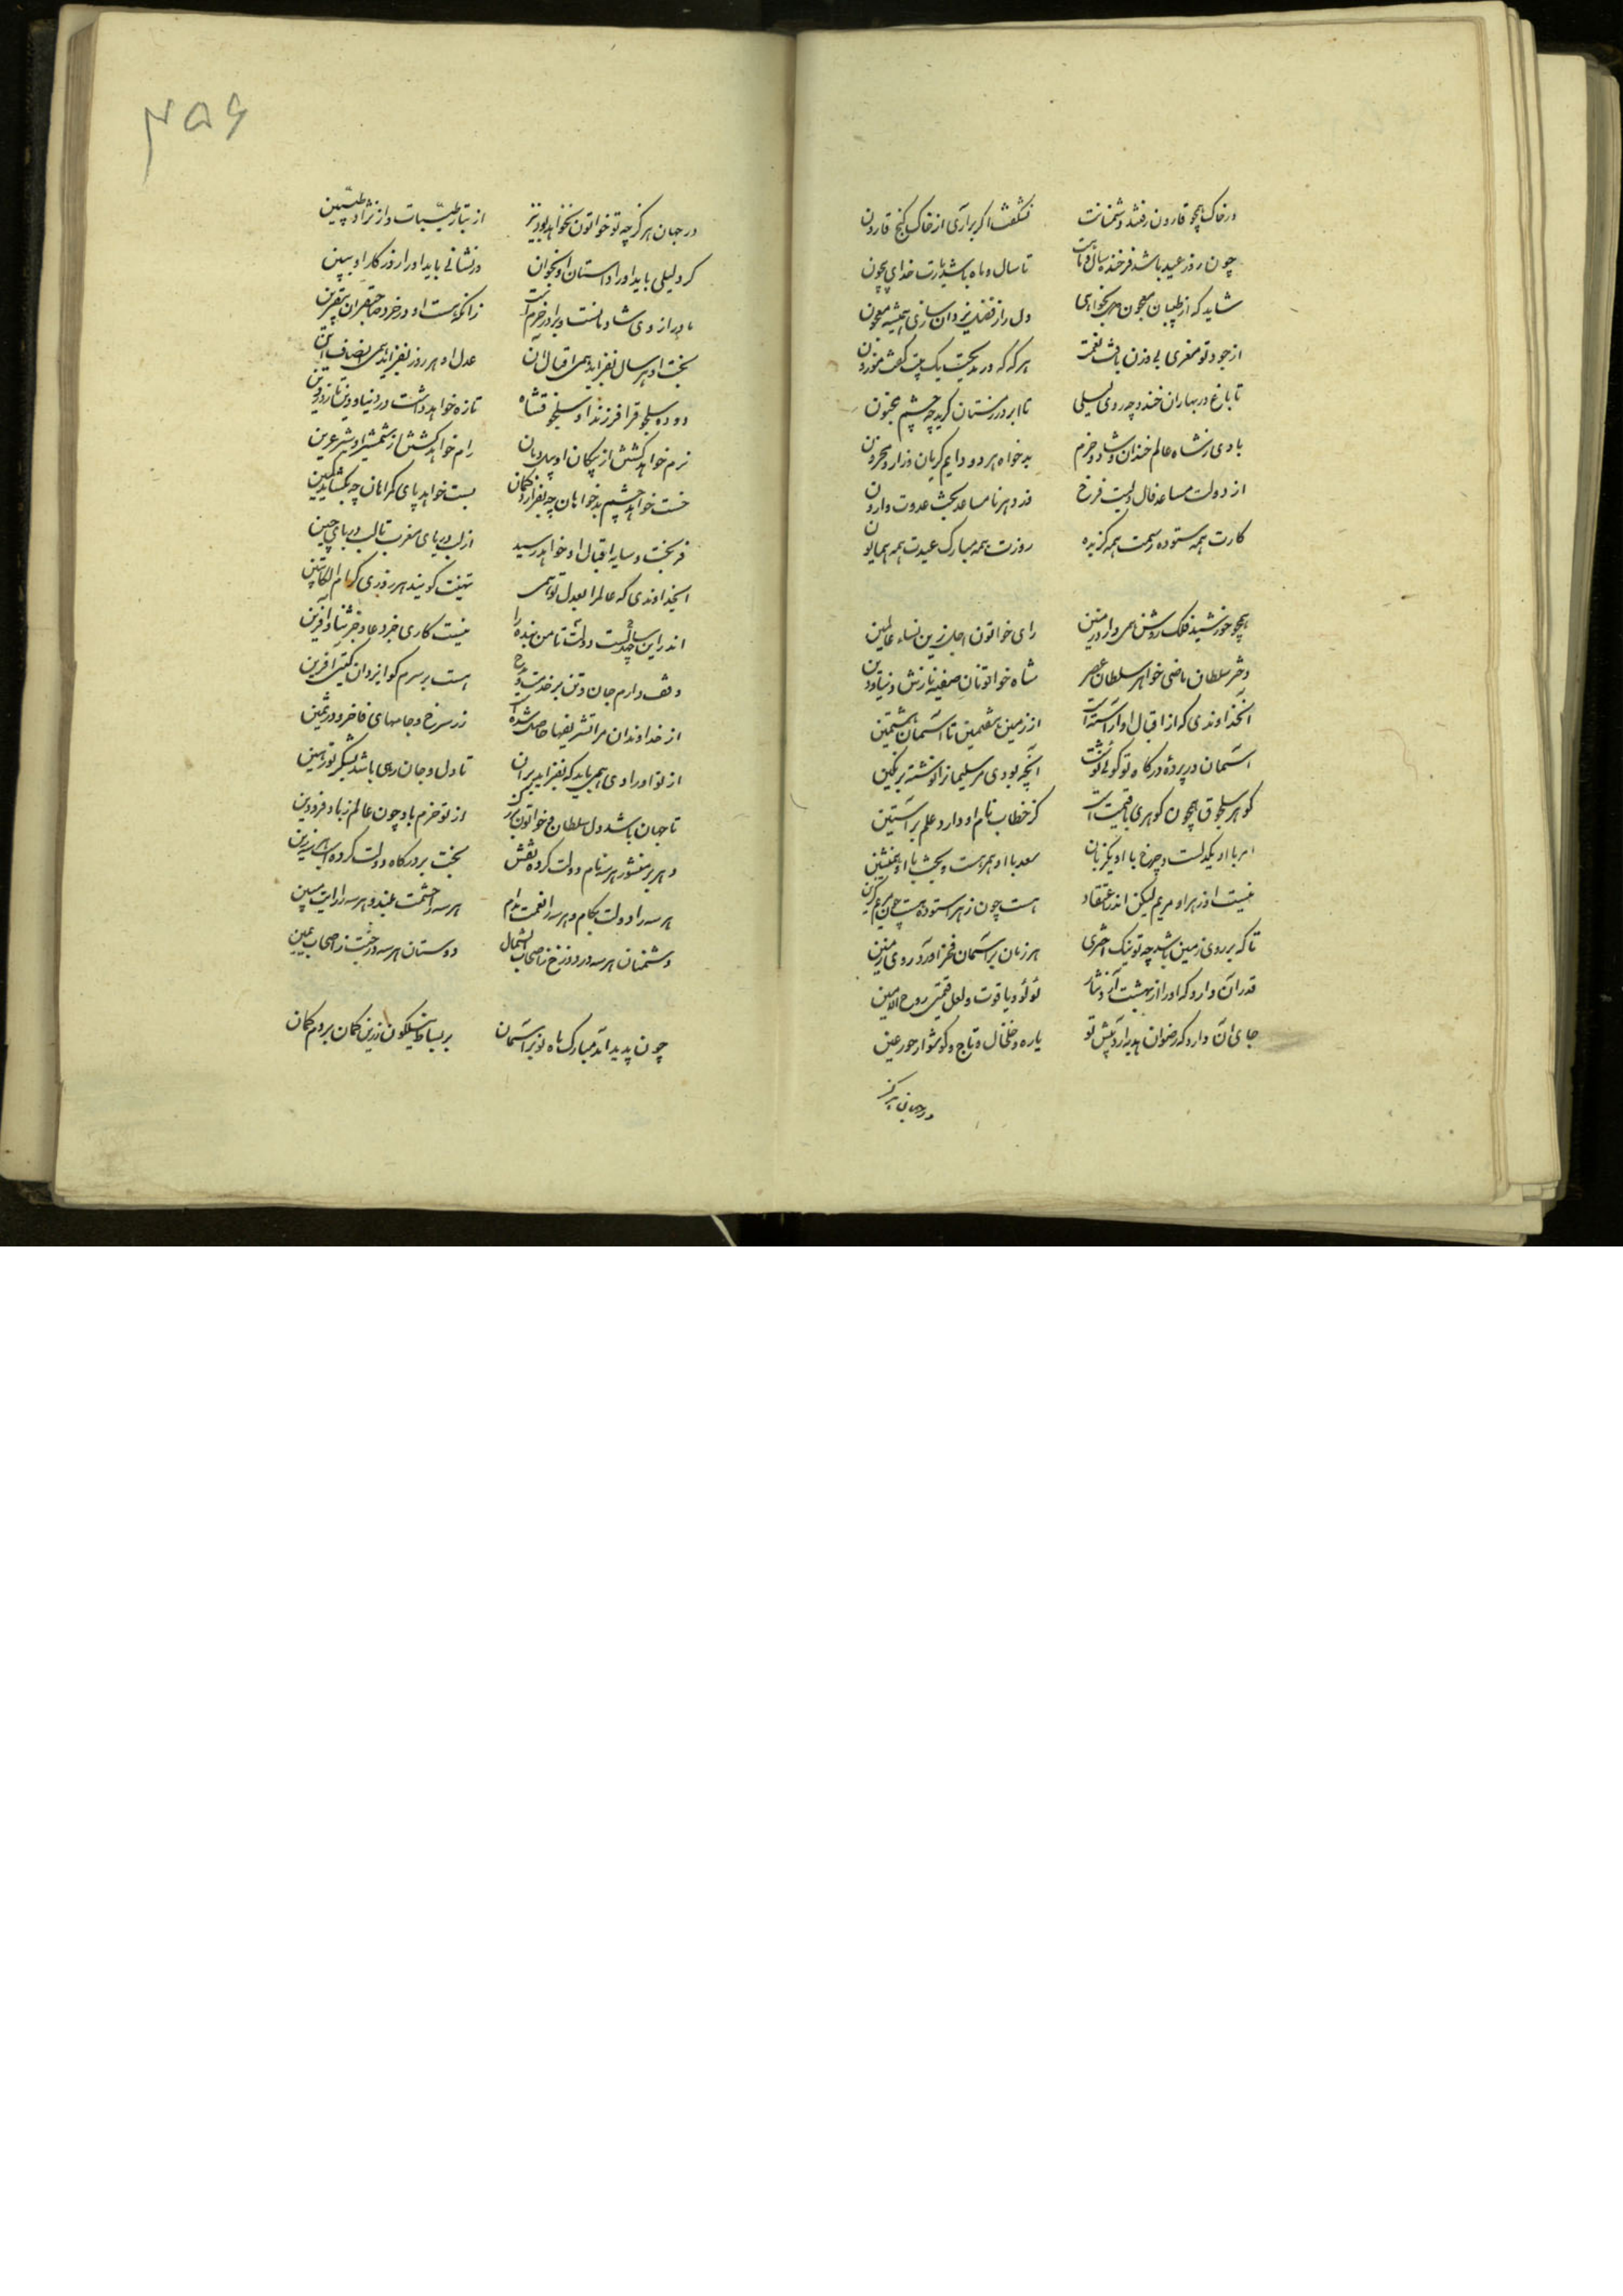 در خاک همچو قارون رفتند دشمنانت
نشگفت اگر برآری از خاک گنج قارون
چون روز عید باشد فرخنده سال و ماهت
تا سال و ماه باشد یارت خدای بیچون
شاید که از طبیبان معجون همی نخواهی
دل را ز فضل یزدان سازی همیشه معجون
از جود تو معزی بی وزن یافت نعمت
هر که که در مدیحت یک بیت گفت موزون
تا باغ در بهاران خندد چو روی لیلی
تا ابر در زمستان گرید چو چشم مجنون
بادی ز شاه عالم خندان و شاد و خرم
بدخواه هر دو دایم گریان و زار و محزون
از دولت مساعد فال ولیت فرخ
وز دهر نامساعد بخت عدوت وارون
کارت همه ستوده رسمت همه گزیده
روزت همه مبارک عیدت همه همایون
همچو خورشید فلک روشن همی دارد زمین
رای خاتون اجل زین نساء عالمین
دختر سلطان ماضی خواهر سلطان عصر
شاه خواتونان صفیه نازش دنیا و دین
آنخداوندی که از اقبال او آراسته است
از زمین هفتمین تا آسمان هشتمین
آسمان در پرده درگاه تو گوئی نوشت
آنچه بودی مر سلیمانرا نوشته بر نگین
گوهر سلجوق همچون گوهری با قیمت است
کز خطاب نام او دارد علم بر آستین
ابر با او یکدلست و چرخ با او یکزبان
سعد با او همرهست و بخت با او همنشین
نیست او زهرا و مریم لیکن اندر اعتقاد
هست چون زهرا ستوده هست چون مریم گزین
تا که بر روی زمین باشد چو تو نیک اختری
هر زمان بر آسمان فخر آورد روی زمین
قدر آن دارد که او را از بهشت آرد نثار
لؤلؤ و یاقوت و لعل قیمتی روح الامین
جای آن دارد که رضوان هدیه آرد پیش تو
یاره و خلخال و تاج و گوشوار حور عین
در جهان هرگز
۴۵۶
در جهان هرگز چو تو خواتون نخواهد بود نیز
از تبار طیبات و از نژاد طیبین
گر دلیلی باید او را داستان او بخوان
ور نشانی باید او را روزگار او ببین
مادر از وی شادمانست و برادر خرم است
زانکه هست او در خرد صاحبقران بیقرین
بخت او هر سال بفزاید همی اقبال آن
عدل او هر روز بفزاید همی انصاف این
دوده سلجوق را فرزند او سلجوقشاه
تازه خواهد داشت در دنیا و دین تا یوم دین
نرم خواهد گشتن از پیکان او پیل دمان
رام خواهد گشتن از شمشیر او شیر عرین
خست خواهد چشم بدخواهان چو بفرازد کمان
بست خواهد پای گمراهان چو بگشاید کمین
فر بخت و سایه اقبال او خواهد رسید
از لب دریای مغرب تا لب دریای چین
ایخداوندی که عالم را بعدل تو همی
تهنیت گویند هر روزی کرام الکاتبین
اندرین سالی چندست دولت تا من بنده را
نیست کاری جز دعا و جز ثنا و آفرین
وقف دارم جان و تن بر خدمت و مدح
هست بر سرم گوا یزدان گیتی آفرین
از خداوندان مرا تشریفها حاصل شده است
زر سرخ و جامهای فاخر و در ثمین
از تو او را وی همی باید که بفزاید بر آن
تا دل و جان رهی باشد بشکر تو رهین
تا جهان باشد دل سلطان و خواتون بزرگ
از تو خرم باد چون عالم ز باد فرودین
دهر بر منشور هر سه نام دولت کرده نقش
بخت بر درگاه دولت کرده اسب هر سه زین
هر سه را دولت بکام و هر سه را نعمت مدام
هر سه را حشمت بلند و هر سه را رایت مبین
دشمنان هر سه در دوزخ ز اصحاب الشمال
دوستان هر سه در جنت ز اصحاب یمین
چون پدید آمد مبارک ماه نو بر آسمان
بر بساط نیلگون زرین کمان بردم گمان